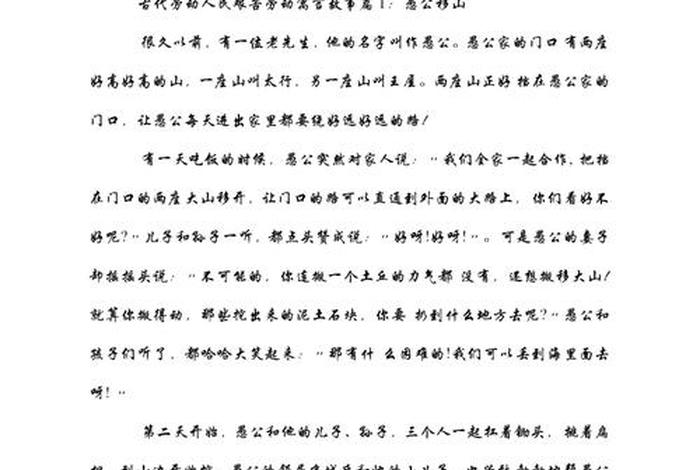 古代劳动人民艰苦劳动寓言故事篇1：愚公移山
很久以前，有一位老先生，他的名字叫作愚公。愚公家的门口 有两座
好高好高的山，一座山叫太行，另一座山叫王屋。两座山正好 挡在愚公家的
门口，让愚公每天进出家里都要绕好远好远的路！
有一天吃饭的时候，愚公突然对家人说："我们全家一起合作，把挡
在门口的两座大山移开，让门口的路可以直通到外面的大路上，你们看好不
好呢？"儿子和孙子一听，都点头赞成说："好呀！好呀！"。可是愚公的妻子
却摇摇头说："不可能的，你连搬一个土丘的力气都 没有，还想搬移大山！
就算你搬得动，那些挖出来的泥土石块，你要 扔到什么地方去呢？"愚公和
孩子们听了，都哈哈大笑起来："那有什 么困难的！我们可以丢到海里面去
呀！"
第二天开始，愚公和他的儿子、孙子，三个人一起扛着锄头，挑着扁